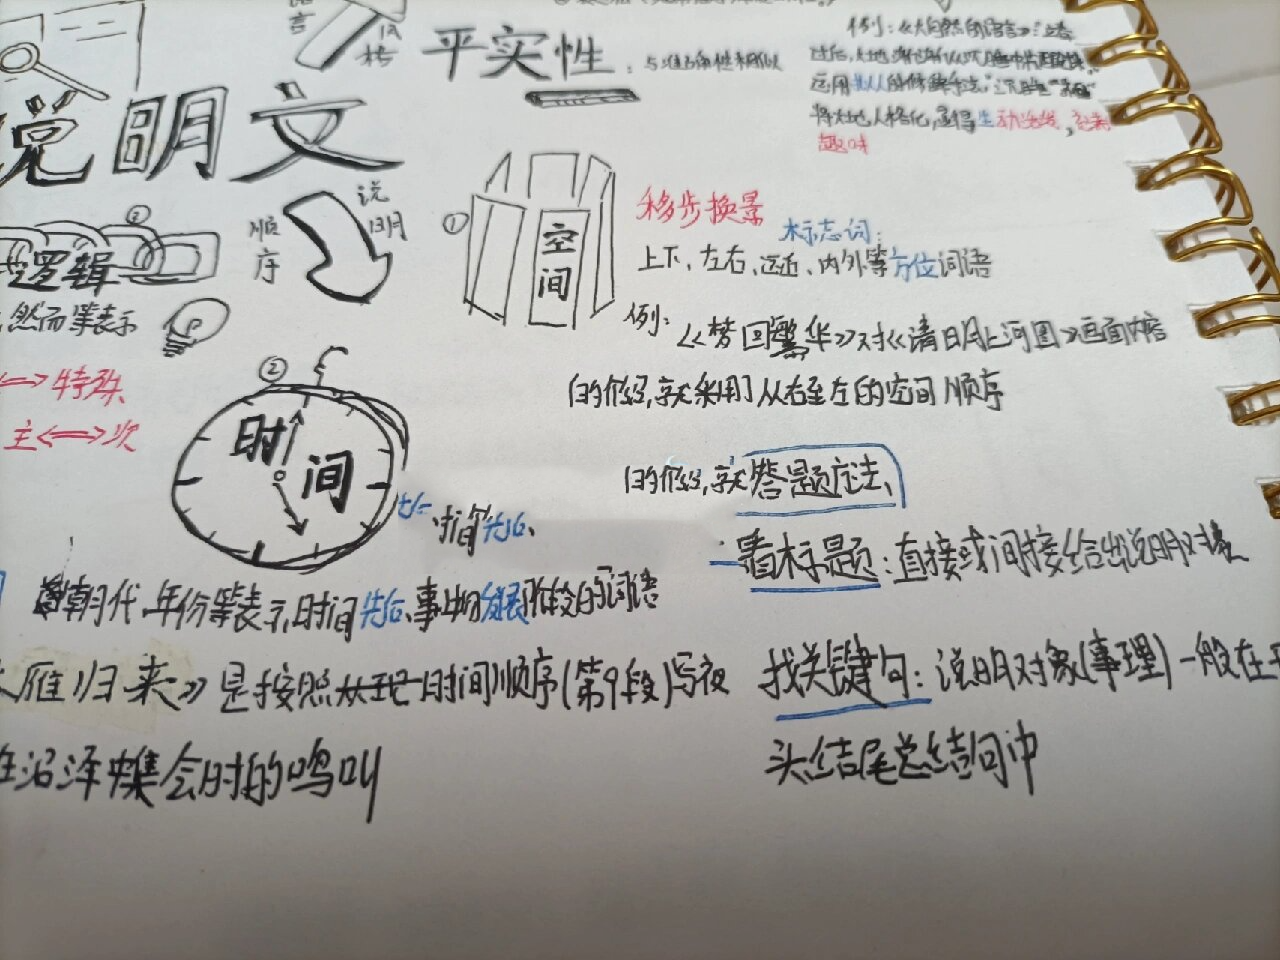 语言
风格
平实性：与准确性相似
例：《大自然的语言》：立春
过后，大地渐渐从沉睡中苏醒过来。
运用拟人的修辞手法，"沉睡""苏醒"
将大地人格化，显得生动活泼，充满
趣味
说明文
说明
顺序
①
空间
移步换景
标志词：
上下、左右、远近、内外等方位词语
例：《梦回繁华》对《清明上河图》画面内容
的介绍，就采用了从右至左的空间顺序
②
逻辑
然而等表示
特殊
主⟺次
②
时间
先后、
的介绍，就答题方法
看标题：直接或间接给出说明对象
朝代、年份等表示时间先后、事物发展阶段的词语
雁归来》是按照时间顺序(第9段)写夜
找关键句：说明对象(事理)一般在开
在沼泽中集会时的鸣叫
头结尾总结句中